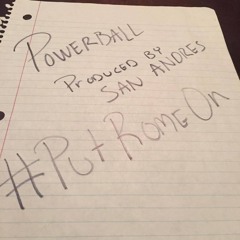 POWERBALL
PRODUCED BY
SAN ANDRES
#PutRomeOn